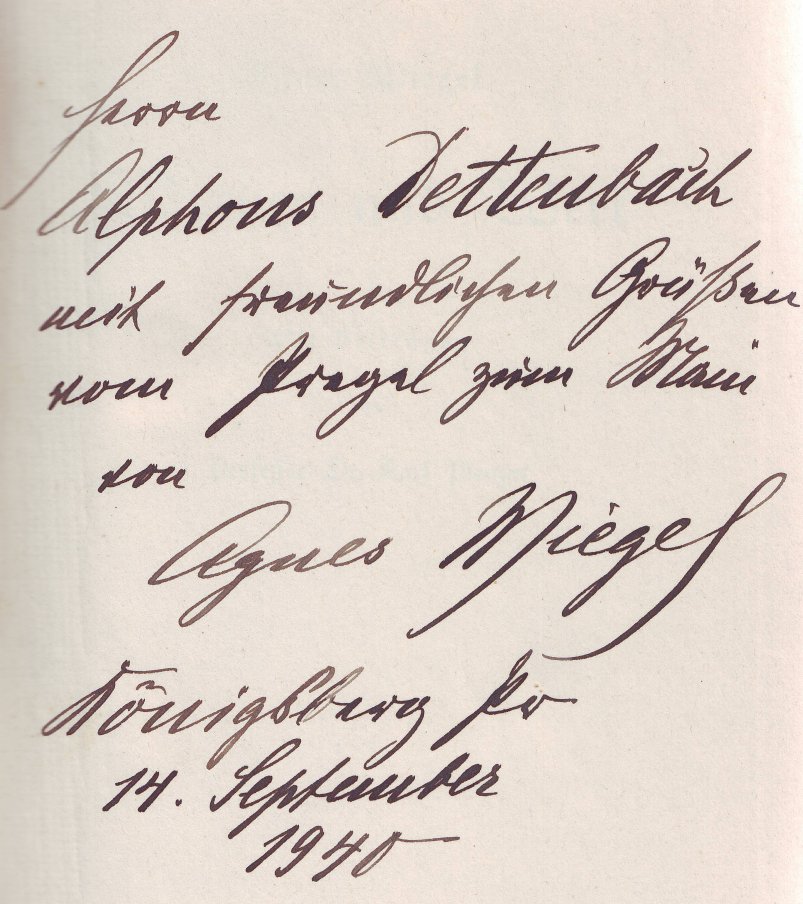 Herrn
Alphons Dettenbach
mit freundlichen Grüßen
vom Pregel zum Main
von
Agnes Miegel
Königsberg Pr
14. September
1940